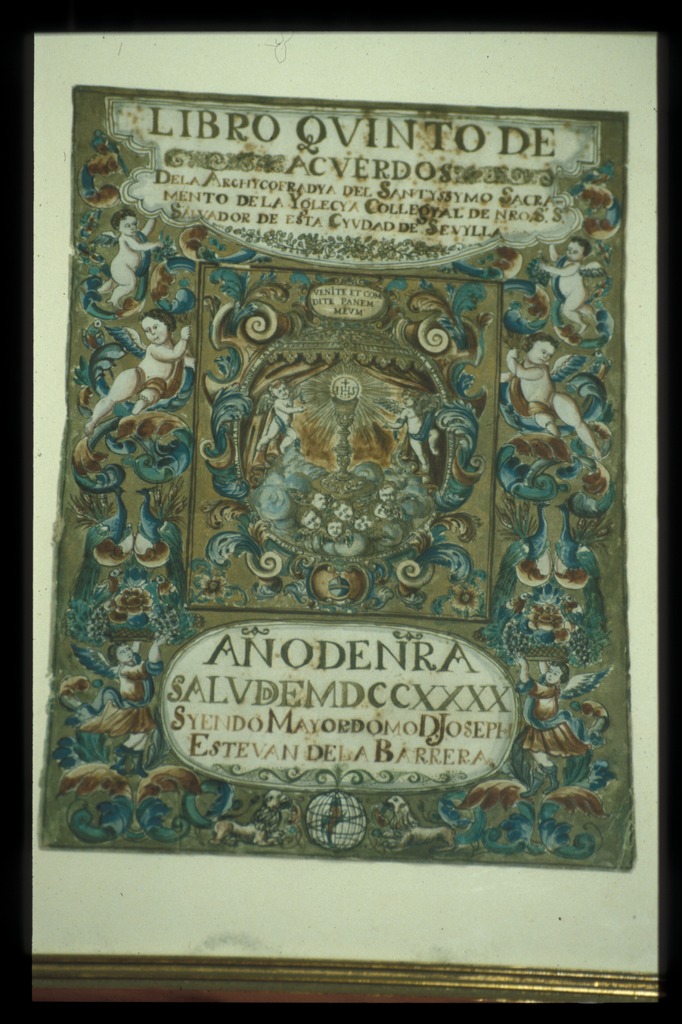 LIBRO QVINTO DE
ACVERDOS
DELA ARCHYCOFRADYA DEL SANTYSSYMO SACRA-
MENTO DE LA YGLECYA COLLEGYAL DE NRO. S. S.
SALVADOR DE ESTA CYVDAD DE SEVYLLA
VENITE ET COM
DITE PANEM
MEVM
IHS
AÑO DE NR̃A
SALVD DE MDCCXXXX
SYENDO MAYORDOMO D JOSEPH
ESTEVAN DE LA BARRERA